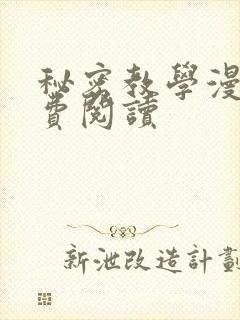 秘密教學漫
費閱讀
新泄改造計劃